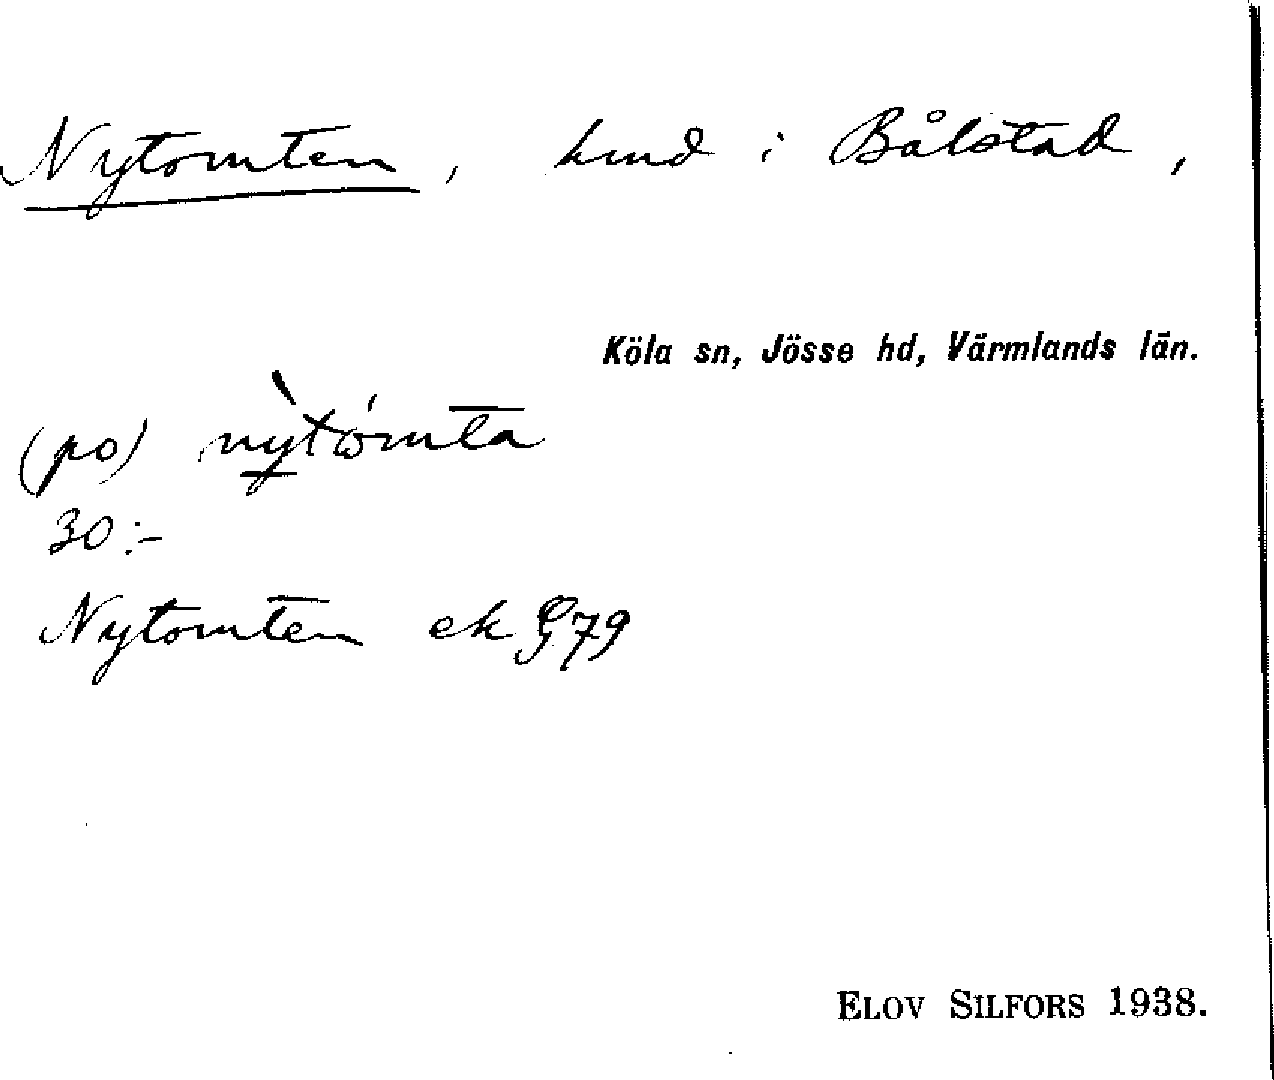 Nytomten, hmd i Bålstad,
Köla sn, Jösse hd, Värmlands län.
(po) nỳtómta
30:-
Nytomten ek G79
ELOV SILFORS 1938.